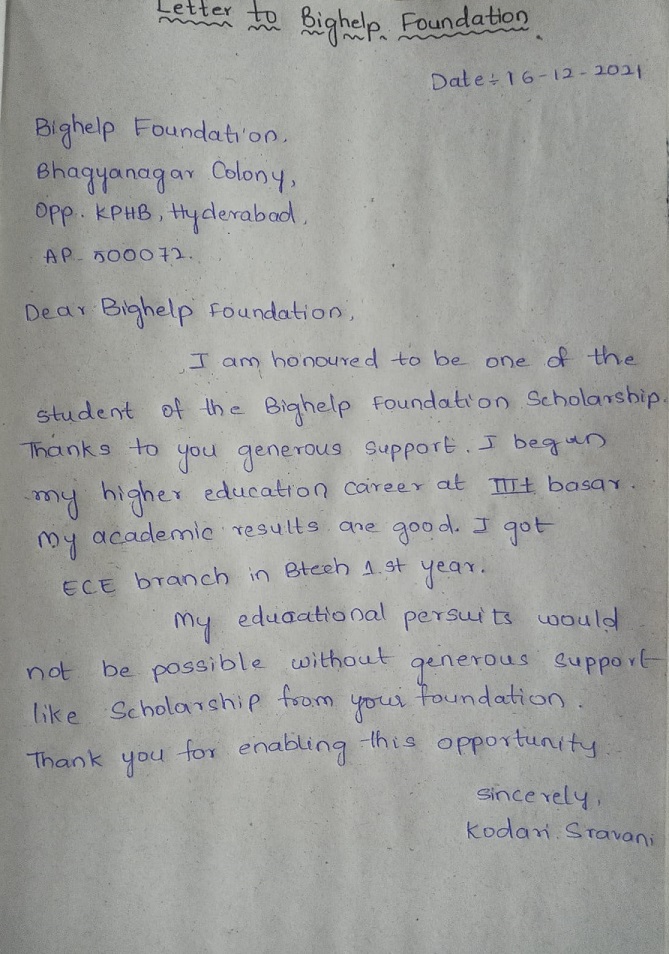 Letter to Bighelp Foundation.
Date:- 16-12-2021
Bighelp Foundation.
Bhagyanagar Colony,
Opp. KPHB, Hyderabad,
AP- 500072.
Dear Bighelp Foundation,
I am honoured to be one of the
student of the Bighelp Foundation Scholarship.
Thanks to you generous support. I began
my higher education career at IIIt basar.
my academic results are good. I got
ECE branch in Btech 1.st year.
My educational persuits would
not be possible without generous support
like Scholarship from your foundation.
Thank you for enabling this opportunity.
sincerely,
Kodari. Sravani